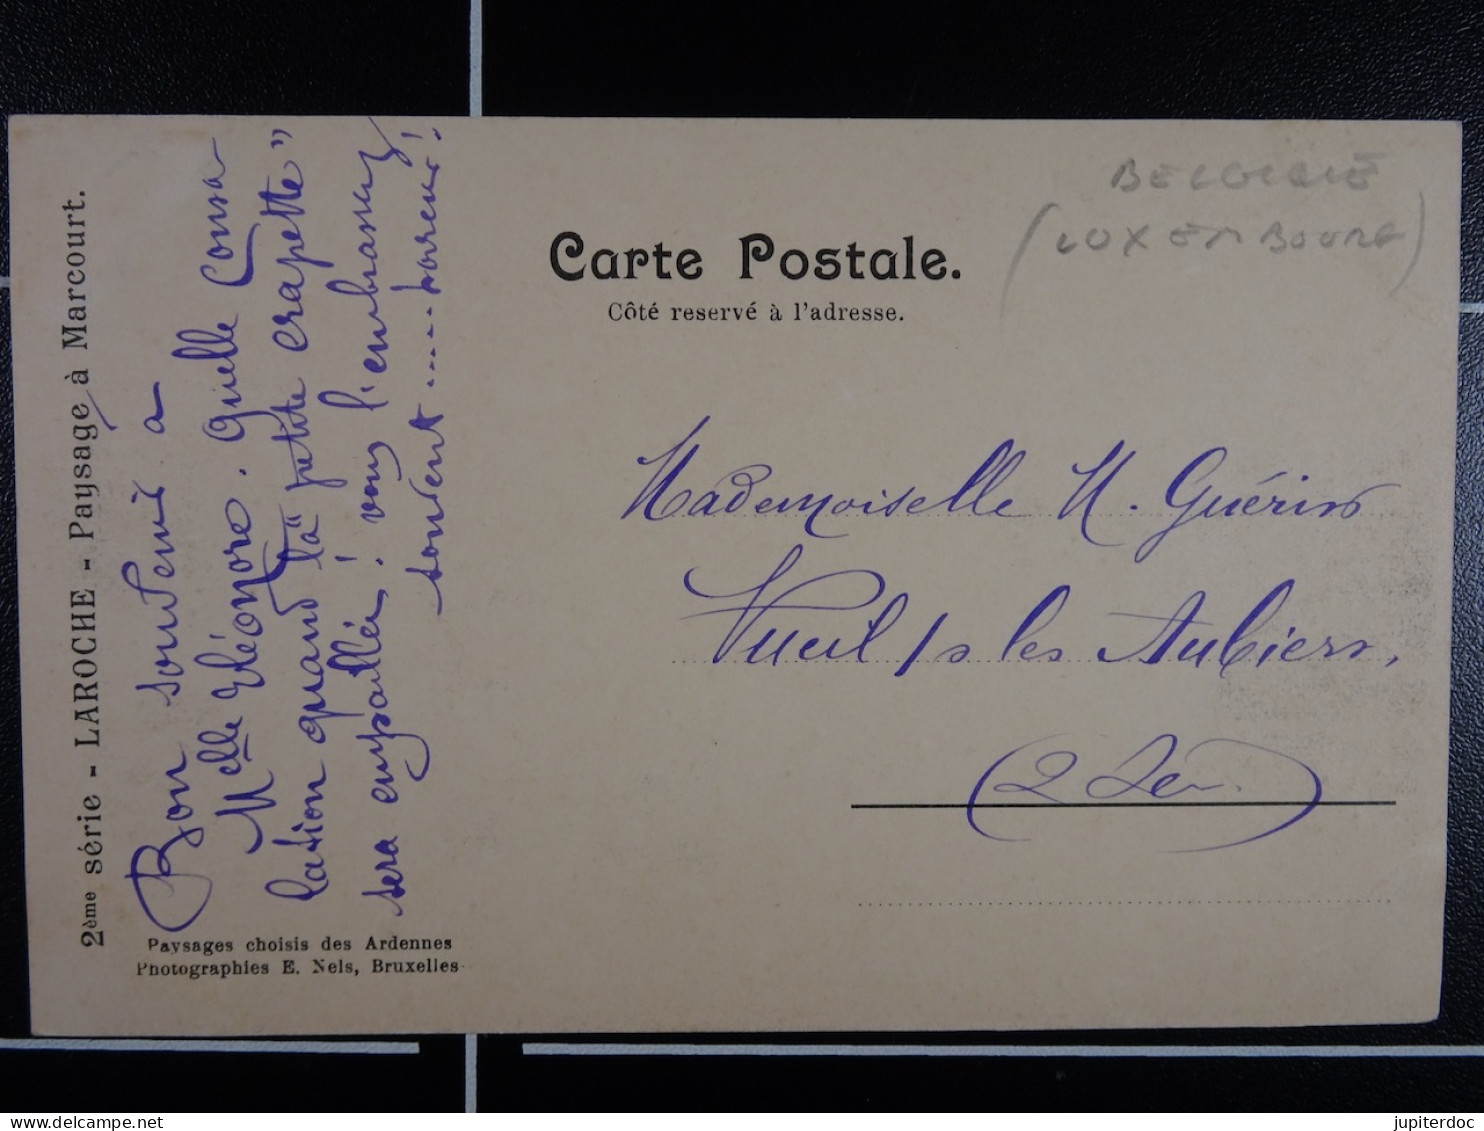 BELGIQUE
(LUXEMBOURG)
Carte Postale.
Côté reservé à l'adresse.
Mademoiselle M. Guérin
Vueil s/ les Aubiers.
(2 Sev.)
2ème série - LAROCHE - Paysage à Marcourt.
Bon souvenir à
Melle Eléonore. Quelle conso-
lation quand la "petite crapette"
sera empaillée! vous l'embrasserez
souvent.....
Paysages choisis des Ardennes
Photographies E. Nels, Bruxelles
www.delcampe.net
jupiterdoc